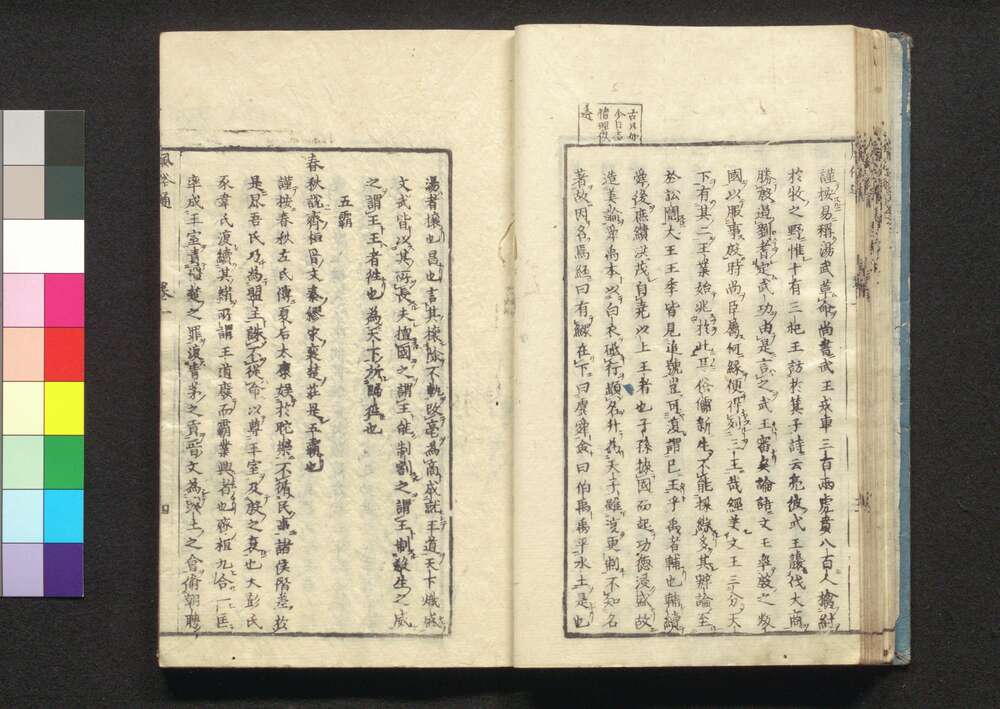 謹按易稱湯武革命尚書武王戎車三百兩虎賁八百人擒紂
於牧之野惟十有三祀王訪於箕子詩云亮彼武王襲伐大商
勝殷遏劉耆定武功由是言之武王審矣論語文王率殷之叛
國以服事殷時尚臣屬何緣便得列三王哉經美文王三分天
下有其二王業始兆於此耳俗儒新生不能採綜多其辯論至
於訟鬩大王王季皆見追號豈可復謂已王乎禹者輔也輔續
舜後庶績洪茂自堯以上王者也子孫據國而起功德浸盛故
造美論舜禹本以白衣砥行顯名升為天子雖復更制不知名
著故因名焉經曰有鰥在下曰虞舜僉曰伯禹禹平水土是也
湯者攘也昌也言其攘除不軌改亳為商成就王道天下熾盛
文武皆以其所長夫擅國之謂王能制割之謂王制殺生之威
之謂王王者往也為天下所歸往也
五霸
春秋說齊桓晉文秦繆宋襄楚莊是五霸也
謹按春秋左氏傳夏后太康娛於耽樂不循民事諸侯僭差於
是昆吾氏乃為盟主誅不從命以尊王室及殷之衰也大彭氏
豕韋氏復續其緒所謂王道廢而霸業興者也齊桓九合一匡
率成王室責彊楚之罪復青茅之貢晉文為踐土之會脩朝聘
風俗通
卷一
四